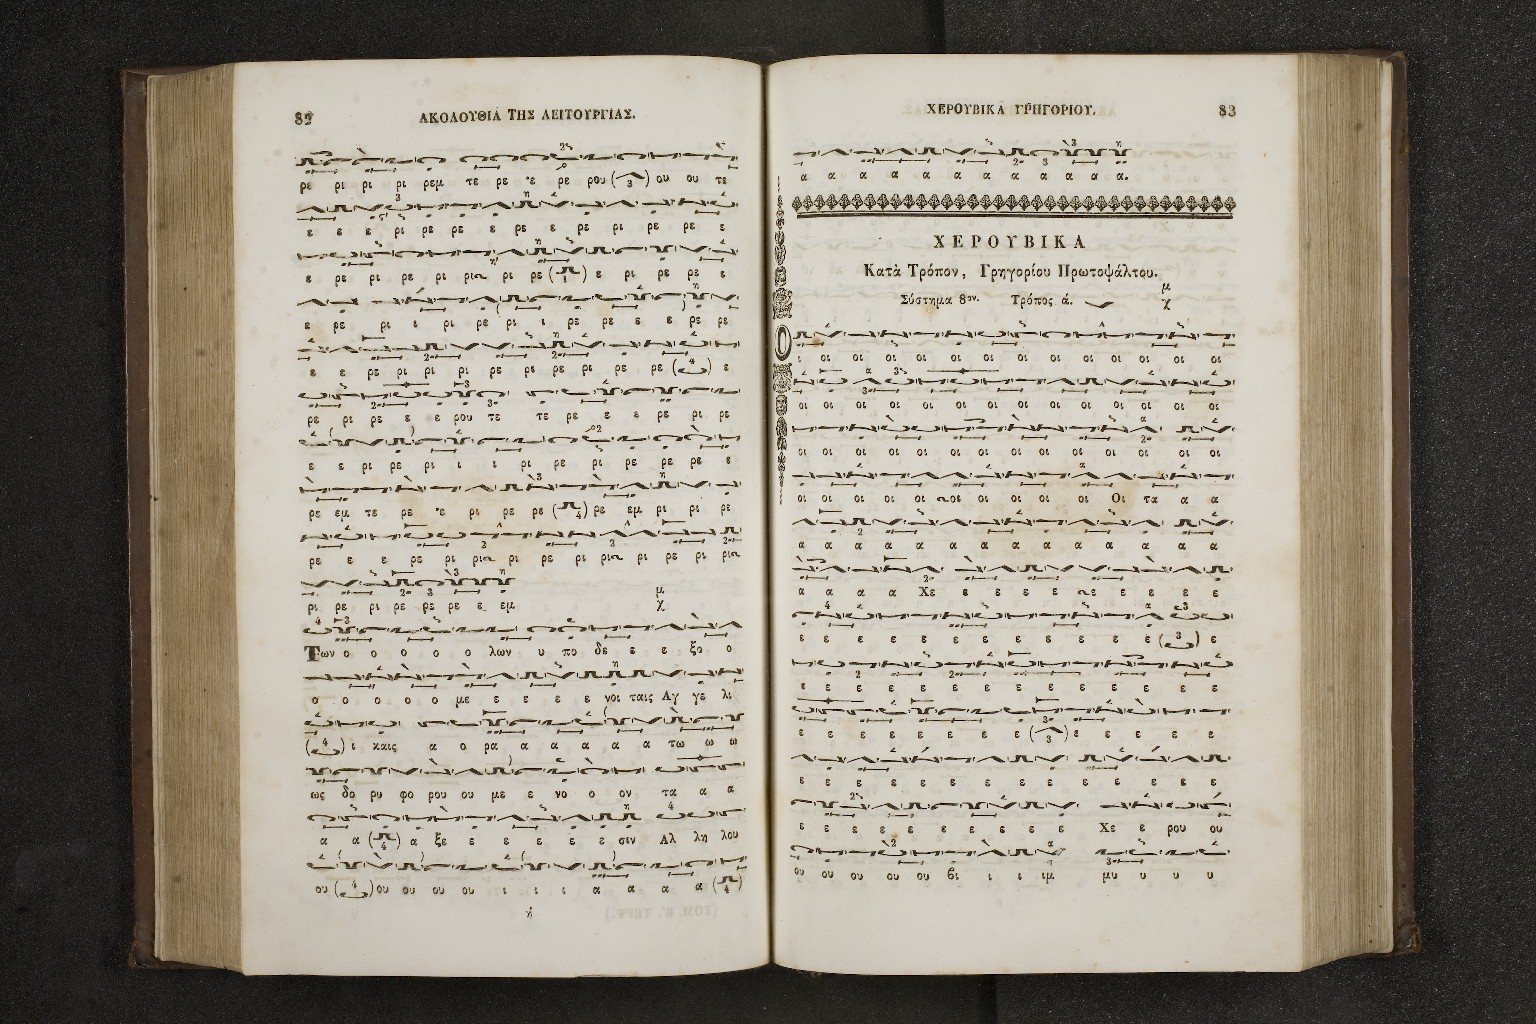 82
ΑΚΟΛΟΥΘΙΑ ΤΗΣ ΛΕΙΤΟΥΡΓΙΑΣ.
ρε ρι ρι ρι ρεμ τε ρε ε ρε ρου (3) ου ου τε
ε ε ε ρι ρε ρε ε ρε ε ρε ρι ρε ρε ε
ε ρε ρι ρε ρι ρι ρι ρε (1) ε ρι ρε ρε ε
ε ρε ρι ι ρι ρε ρι ι ρε ρε ε ε ρε ρε
ε ε ρε ρι ρι ρι ρε ρε ρε ρι ρε ρε (4) ε
ρε ρι ρε ε ε ρου τε τε ρε ε ε ρε ρι ρε
ε ε ρι ρε ρι ι ι ρι ρε ρι ρε ρε ρε ε
ρε εμ τε ρε ε ρι ρε ρε (4) ρε εμ ρι ρι ρε
ρε ε ε ρε ρι ρι ρι ρε ρι ρι ρι ρε ρι ρι
ρι ρε ρι ρε ρε ρε ε εμ
Των ο ο ο ο ο λων υ πο δε ε ε ξο ο
ο ο ο ο ο με ε ε ε ε νοι ταις Αγ γε λι
(4) ι καις α ο ρα α α α α α τω ω ω
ως δο ρυ φο ρου ου με ε νο ο ον τα α α
α α (4) α ξε ε ε ε ε ε σιν Αλ λη λου
ου (4) ου ου ου ου ι ι ι α α α α (4)
ή
ΧΕΡΟΥΒΙΚΑ ΓΡΗΓΟΡΙΟΥ.
83
α α α α α α α α α α α α.
ΧΕΡΟΥΒΙΚΑ
Κατὰ Τρόπον, Γρηγορίου Πρωτοψάλτου.
Σύστημα 8ον. Τρόπος ά.
Ο ι οι οι οι οι οι οι οι οι οι οι οι οι οι
οι οι οι οι οι οι οι οι οι οι οι οι οι οι
οι οι οι οι οι οι οι οι οι οι οι οι οι
οι οι οι οι οι οι οι οι οι οι οι Οι τα α α
α α α α α α α α α α α α α α
α α α α Χε ε ε ε ε ε ε ε ε ε
ε ε ε ε ε ε ε ε ε ε ε ε (3) ε
ε ε ε ε ε ε ε ε ε ε ε ε ε ε
ε ε ε ε ε ε ε ε (3) ε ε ε ε ε
ε ε ε ε ε ε ε ε ε ε ε ε ε ε
ε ε ε ε ε ε ε ε ε ε Χε ε ρου ου
ου ου ου ου ου βι ι ι ιμ μυ υ υ υ